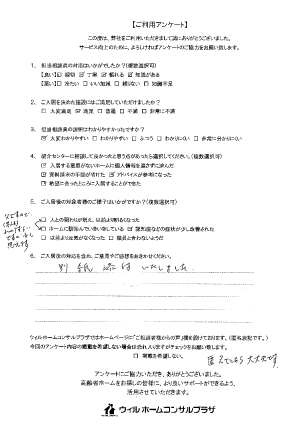 【ご利用アンケート】
この度は、弊社をご利用いただきまして誠にありがとうございました。
サービス向上のために、よろしければアンケートのご協力をお願い致します。
1. 担当相談員の対応はいかがでしたか？（複数選択可）
【良い】☑ 親切 ☑ 丁寧 ☑ 頼れる ☑ 知識がある
【悪い】□ 冷たい □ いい加減 □ 頼りない □ 知識不足
2. ご入居を決めた施設にはご満足していただけましたか？
□ 大変満足 ☑ 満足 □ 普通 □ 不満 □ 非常に不満
3. 担当相談員の説明はわかりやすかったですか？
☑ 大変わかりやすい □ わかりやすい □ ふつう □ わかりにくい □ 非常に分かりにくい
4. 紹介センターに相談して良かったと思う点があったら選択してください。（複数選択可）
☑ 入居する意思がないホームに個人情報を渡さずに済んだ
☑ 資料請求の手間が省けた ☑ アドバイスが参考になった
☑ 希望に合ったところに入居することができた
5. ご入居後の対象者様のご様子はいかがですか？（複数選択可）
□ 人との関わりが増え、以前より明るくなった
□ ホームに馴染んでいき幸いしている □ 認知症などの症状が少し改善された
□ 以前より元気がなくなった □ 職員と合わないようだ
6. ご入居後の対応を含め、ご意見やご感想をお聞かせください。
別紙 添付 いたしました
ウィルホームコンサルプラザではホームページに「ご相談者様からの声」欄を設けております。（匿名表記です。）
今回のアンケート内容の掲載を希望しない場合は恐れ入りますがチェックをお願い致します。
□ 掲載を希望しない。
匿名でしたら 大丈夫です
アンケートにご協力いただき、ありがとうございました。
高齢者ホームをお探しの皆様に、より良いサポートができるよう、
活用させていただきます。
ウィル ホームコンサルプラザ